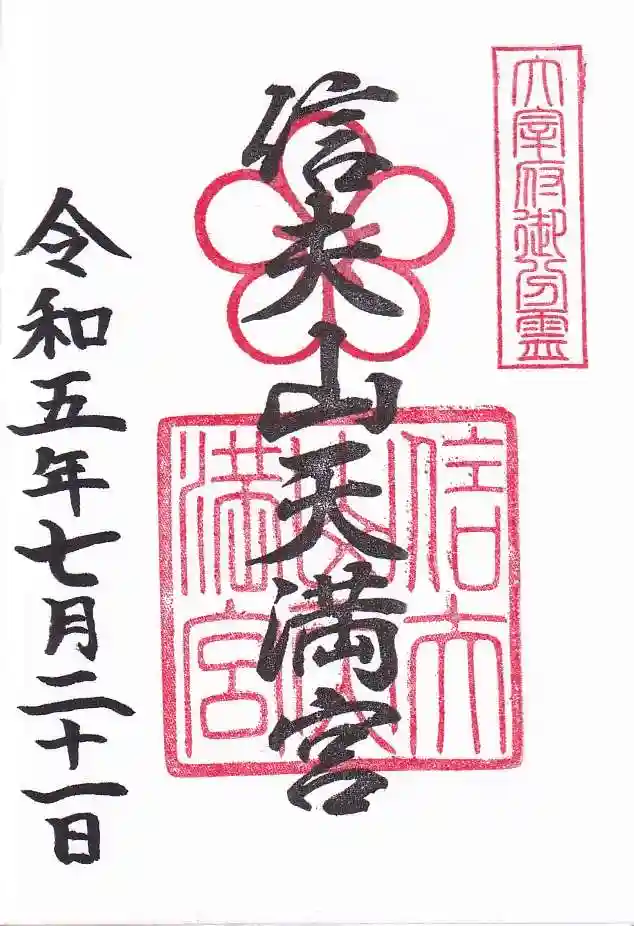 太宰府御分霊
信夫山天満宮
信夫
山天
満宮
令和五年七月二十一日